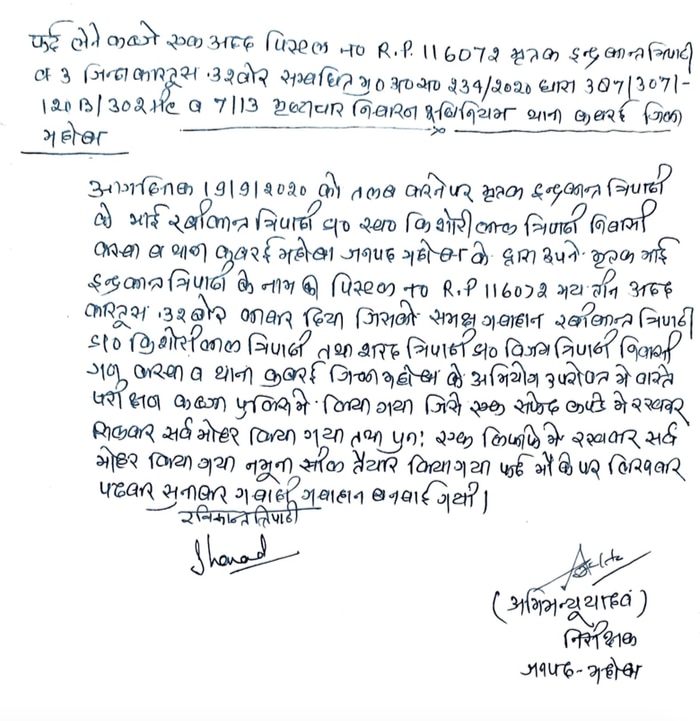 फर्द लेने कब्जे एक अदद पिस्टल no R.P. 116072 मृतक इन्द्रकान्त त्रिपाठी
व 3 जिन्दा कारतूस .32 बोर सम्बन्धित मु0अ0स0 234/2020 धारा 387/307/-
120B/302 भद व 7/13 भ्रष्टाचार निवारण अधिनियम थाना कबरई जिला
महोबा
आज दिनांक 19/9/2020 को तलब करने पर मृतक इन्द्रकान्त त्रिपाठी
के भाई रवीकान्त त्रिपाठी s/o स्व0 किशोरी लाल त्रिपाठी निवासी
कस्बा व थाना कबरई महोबा जनपद महोबा के द्वारा अपने मृतक भाई
इन्द्रकान्त त्रिपाठी के नाम की पिस्टल no R.P 116072 मय तीन अदद
कारतूस .32 बोर लाकर दिया जिसको समक्ष गवाहान रवीकान्त त्रिपाठी
s/o किशोरीलाल त्रिपाठी तथा शरद त्रिपाठी s/o विजय त्रिपाठी निवासी
गण कस्बा व थाना कबरई जिला महोबा के अभियोग उपरोक्त मे वास्ते
परीक्षण कब्जा पुलिस मे लिया गया जिसे एक सफेद कपडे मे रखकर
सिलकर सर्व मोहर किया गया तथा पुनः एक लिफाफे मे रखकर सर्व
मोहर किया गया नमूना सील तैयार किया गया फर्द मौके पर लिखकर
पढकर सुनाकर गवाही गवाहान बनवाई गयी।
रविकान्त त्रिपाठी
Sharad
(अभिमन्यू यादव)
निरीक्षक
जनपद - महोबा